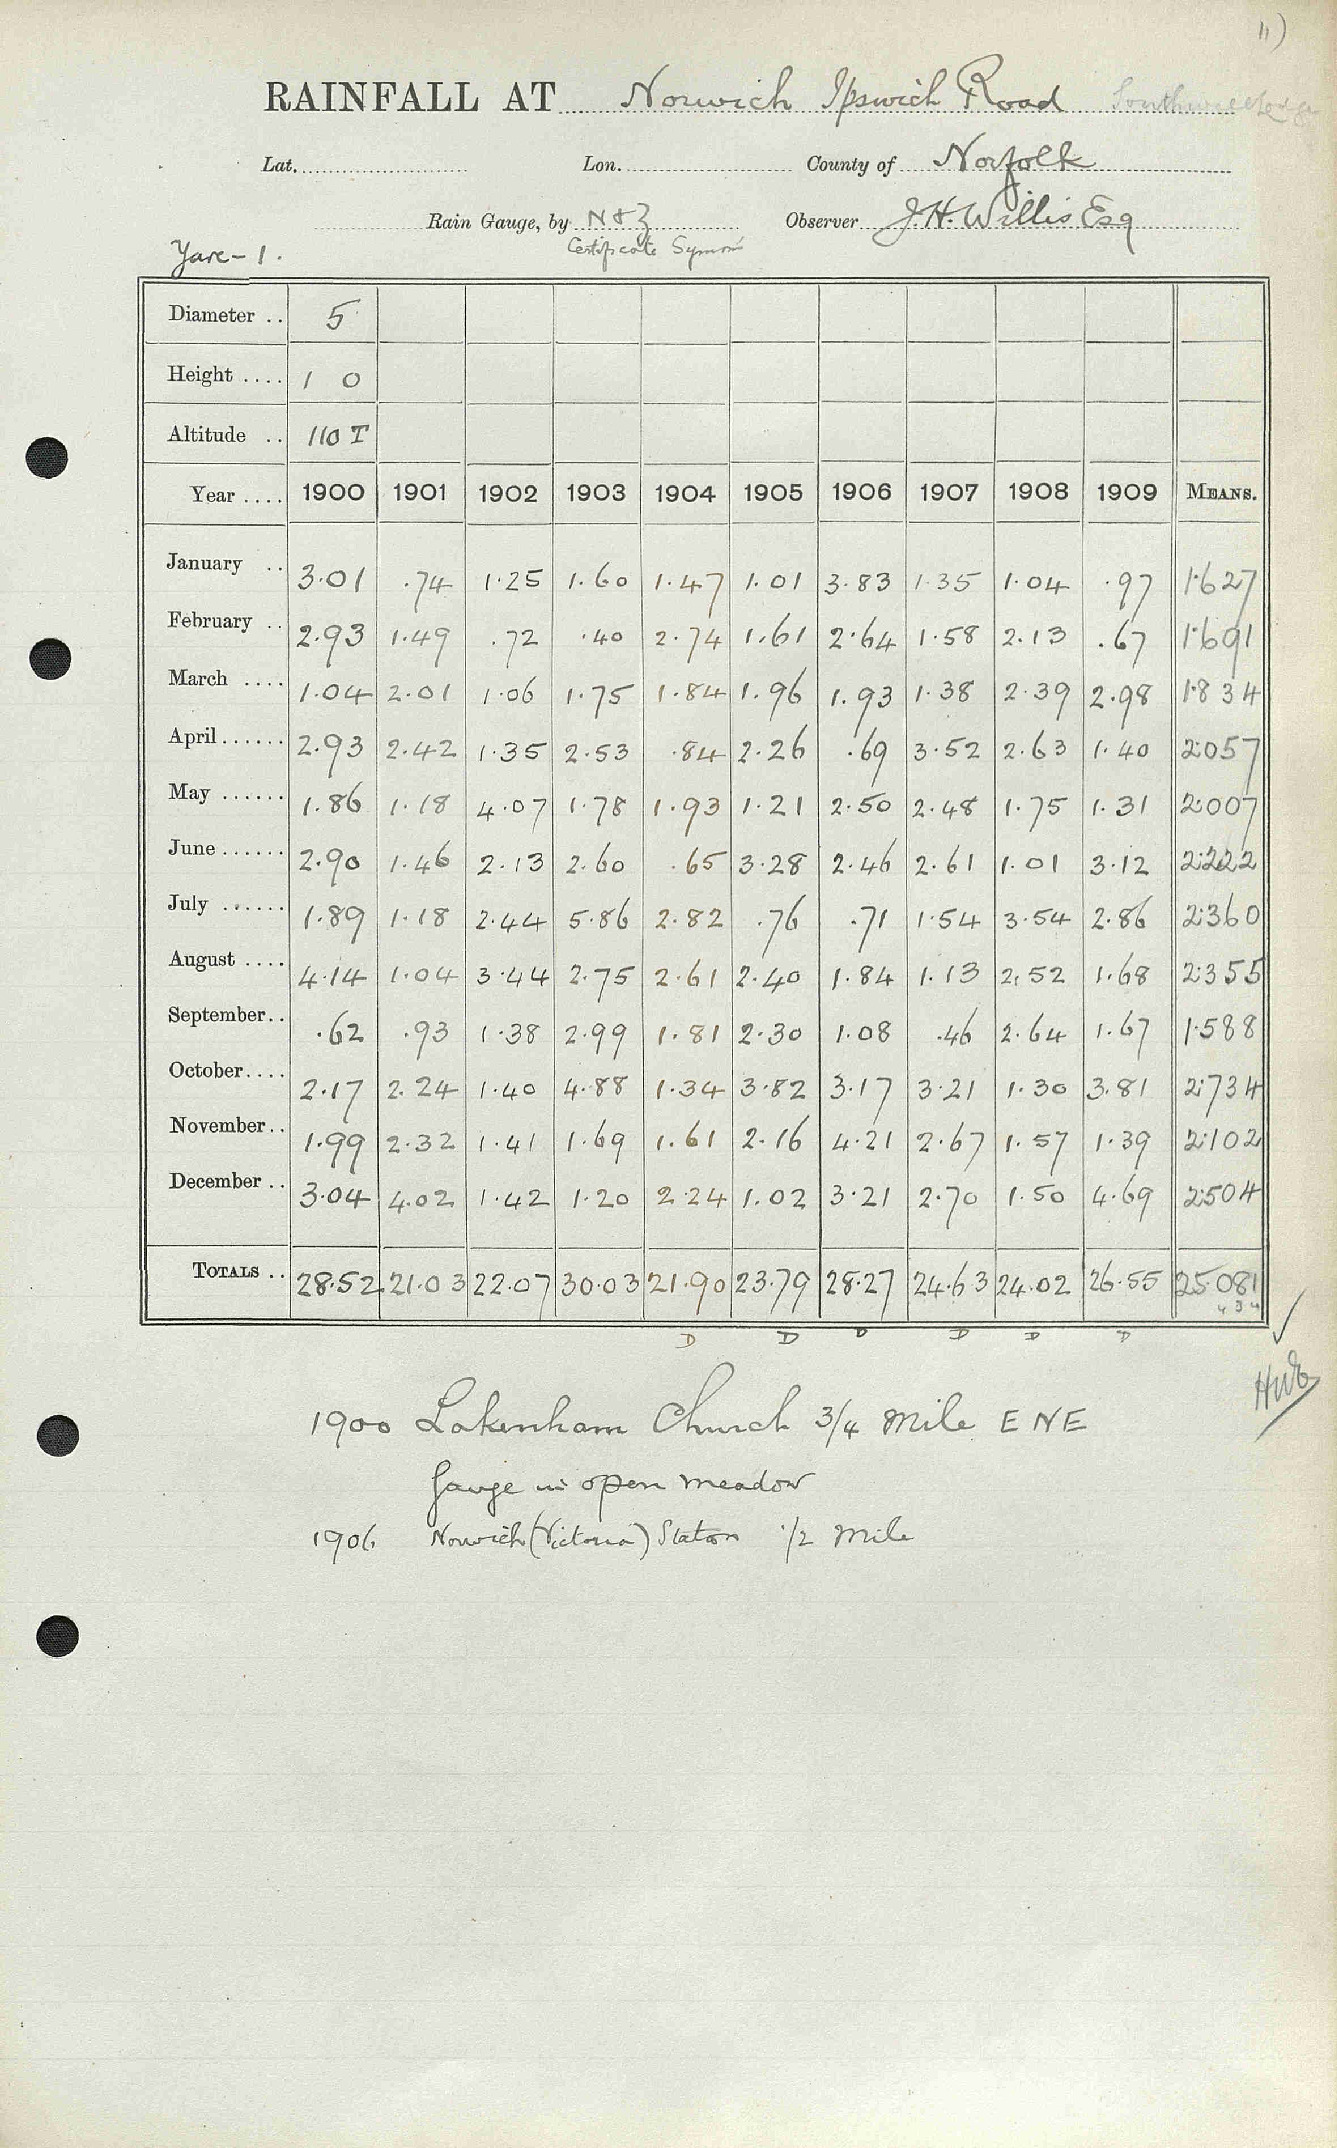 11)
RAINFALL AT Norwich Ipswich Road
Lat. Lon. County of Norfolk
Rain Gauge, by N & Z Observer J.H. Willis Esq
Yare-1. Certificate Symons
Diameter .. 5
Height .... 1 0
Altitude .. 110 T
Year .... 1900 1901 1902 1903 1904 1905 1906 1907 1908 1909 MEANS.
January .. 3.01 .74 1.25 1.60 1.47 1.01 3.83 1.35 1.04 .97 1.627
February .. 2.93 1.49 .72 .40 2.74 1.61 2.64 1.58 2.13 .67 1.691
March .... 1.04 2.01 1.06 1.75 1.84 1.96 1.93 1.38 2.39 2.98 1.834
April...... 2.93 2.42 1.35 2.53 .84 2.26 .69 3.52 2.63 1.40 2.057
May ...... 1.86 1.18 4.07 1.78 1.93 1.21 2.50 2.48 1.75 1.31 2.007
June ...... 2.90 1.46 2.13 2.60 .65 3.28 2.46 2.61 1.01 3.12 2.222
July ...... 1.89 1.18 2.44 5.86 2.82 .76 .71 1.54 3.54 2.86 2.360
August .... 4.14 1.04 3.44 2.75 2.61 2.40 1.84 1.13 2.52 1.68 2.355
September.. .62 .93 1.38 2.99 1.81 2.30 1.08 .46 2.64 1.67 1.588
October.... 2.17 2.24 1.40 4.88 1.34 3.82 3.17 3.21 1.30 3.81 2.734
November.. 1.99 2.32 1.41 1.69 1.61 2.16 4.21 2.67 1.57 1.39 2.102
December .. 3.04 4.02 1.42 1.20 2.24 1.02 3.21 2.70 1.50 4.69 2.504
TOTALS .. 28.52 21.03 22.07 30.03 21.90 23.79 28.27 24.63 24.02 26.55 25.081
D D D D D D
1900 Lakenham Church 3/4 Mile ENE
Gauge in open meadow
1906 Norwich (Victoria) Station 1/2 Mile